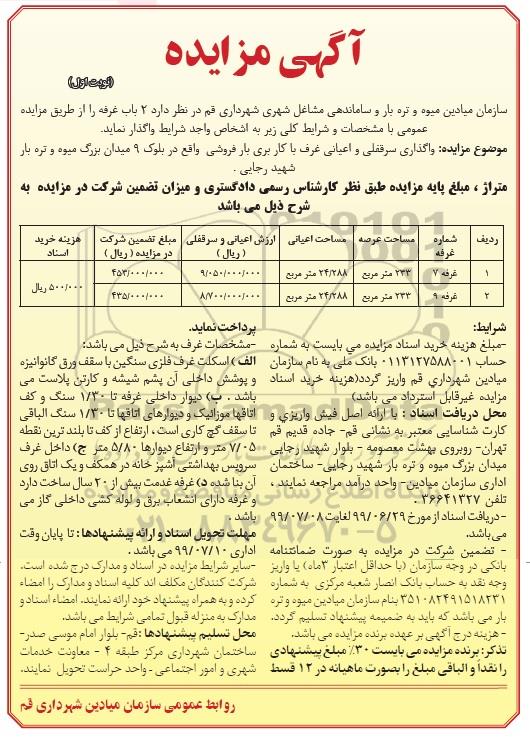 آگهی مزایده
(نوبت اول)
سازمان میادین میوه و تره بار و ساماندهی مشاغل شهری شهرداری قم در نظر دارد ۲ باب غرفه را از طریق مزایده
عمومی با مشخصات و شرایط کلی زیر به اشخاص واجد شرایط واگذار نماید.
موضوع مزایده: واگذاری سرقفلی و اعیانی غرف با کار بری بار فروشی واقع در بلوک ۹ میدان بزرگ میوه و تره بار
شهید رجایی .
متراژ ، مبلغ پایه مزایده طبق نظر کارشناس رسمی دادگستری و میزان تضمین شرکت در مزایده به
شرح ذیل می باشد
ردیف | شماره غرفه | مساحت عرصه | مساحت اعیانی | ارزش اعیانی و سرقفلی ( ریال ) | مبلغ تضمین شرکت در مزایده ( ریال ) | هزینه خرید اسناد
۱ | غرفه ۷ | ۲۳۳ متر مربع | ۲۴/۲۸۸ متر مربع | ۹/۰۵۰/۰۰۰/۰۰۰ | ۴۵۳/۰۰۰/۰۰۰ | ۵۰۰/۰۰۰ ریال
۲ | غرفه ۹ | ۲۳۳ متر مربع | ۲۴/۲۸۸ متر مربع | ۸/۷۰۰/۰۰۰/۰۰۰ | ۴۳۵/۰۰۰/۰۰۰
شرایط:
-مبلغ هزینه خرید اسناد مزایده می بایست به شماره
حساب ۰۱۱۳۱۲۷۵۸۸۰۰۱ بانک ملی به نام سازمان
میادین شهرداری قم واریز گردد(هزینه خرید اسناد
مزایده غیرقابل استرداد می باشد)
محل دریافت اسناد : با ارائه اصل فیش واریزی و
کارت شناسایی معتبر به نشانی قم- جاده قدیم قم
تهران- روبروی بهشت معصومه - بلوار شهید رجایی
میدان بزرگ میوه و تره بار شهید رجایی- ساختمان
اداری سازمان میادین- واحد درآمد مراجعه نمایند ،
تلفن ۳۶۶۴۱۳۲۷ .
-دریافت اسناد از مورخ ۹۹/۰۶/۲۹ لغایت ۹۹/۰۷/۰۸
می‌باشد.
- تضمین شرکت در مزایده به صورت ضمانتنامه
بانکی در وجه سازمان (با حداقل اعتبار ۳ماه) یا واریز
وجه نقد به حساب بانک انصار شعبه مرکزی به شماره
۳۵۱۰۸۲۴۹۱۵۱۸۲۳۱ بنام سازمان میادین میوه و تره
بار می باشد که باید به ضمیمه پیشنهاد تسلیم گردد.
- هزینه درج آگهی بر عهده برنده مزایده می باشد.
تذکر: برنده مزایده می بایست ۳۰٪ مبلغ پیشنهادی
را نقدا و الباقی مبلغ را بصورت ماهیانه در ۱۲ قسط
پرداخت نماید.
-مشخصات غرف به شرح ذیل می باشد:
الف) اسکلت غرف فلزی سنگین با سقف ورق گالوانیزه
و پوشش داخلی آن پشم شیشه و کارتن پلاست می
باشد . ب) دیوار داخلی غرفه تا ۱/۳۰ سنگ و کف
اتاقها موزائیک و دیوارهای اتاقها تا ۱/۳۰ سنگ الباقی
تا سقف گچ کاری است ، ارتفاع از کف تا بلند ترین نقطه
۷/۰۵ متر و ارتفاع دیوارها ۵/۸۰ متر ج) داخل غرف
سرویس بهداشتی آشپز خانه در همکف و یک اتاق روی
آن بنا شده د) غرفه غدمت بیش از ۲۰ سال ساخت دارد
و غرفه دارای انشعاب برق و لوله کشی داخلی گاز می
باشد .
مهلت تحویل اسناد و ارائه پیشنهادها : تا پایان وقت
اداری ۹۹/۰۷/۱۰ می باشد .
-سایر شرایط مزایده در اسناد و مدارک درج شده است.
شرکت کنندگان مکلف اند کلیه اسناد و مدارک را امضاء
کرده و به همراه پیشنهاد خود ارائه نمایند. امضاء اسناد و
مدارک به منزله قبول تمامی شرایط می باشد.
محل تسلیم پیشنهادها: قم- بلوار امام موسی صدر-
ساختمان شهرداری مرکز طبقه ۴ - معاونت خدمات
شهری و امور اجتماعی ـ واحد حراست تحویل نمایند.
روابط عمومی سازمان میادین شهرداری قم